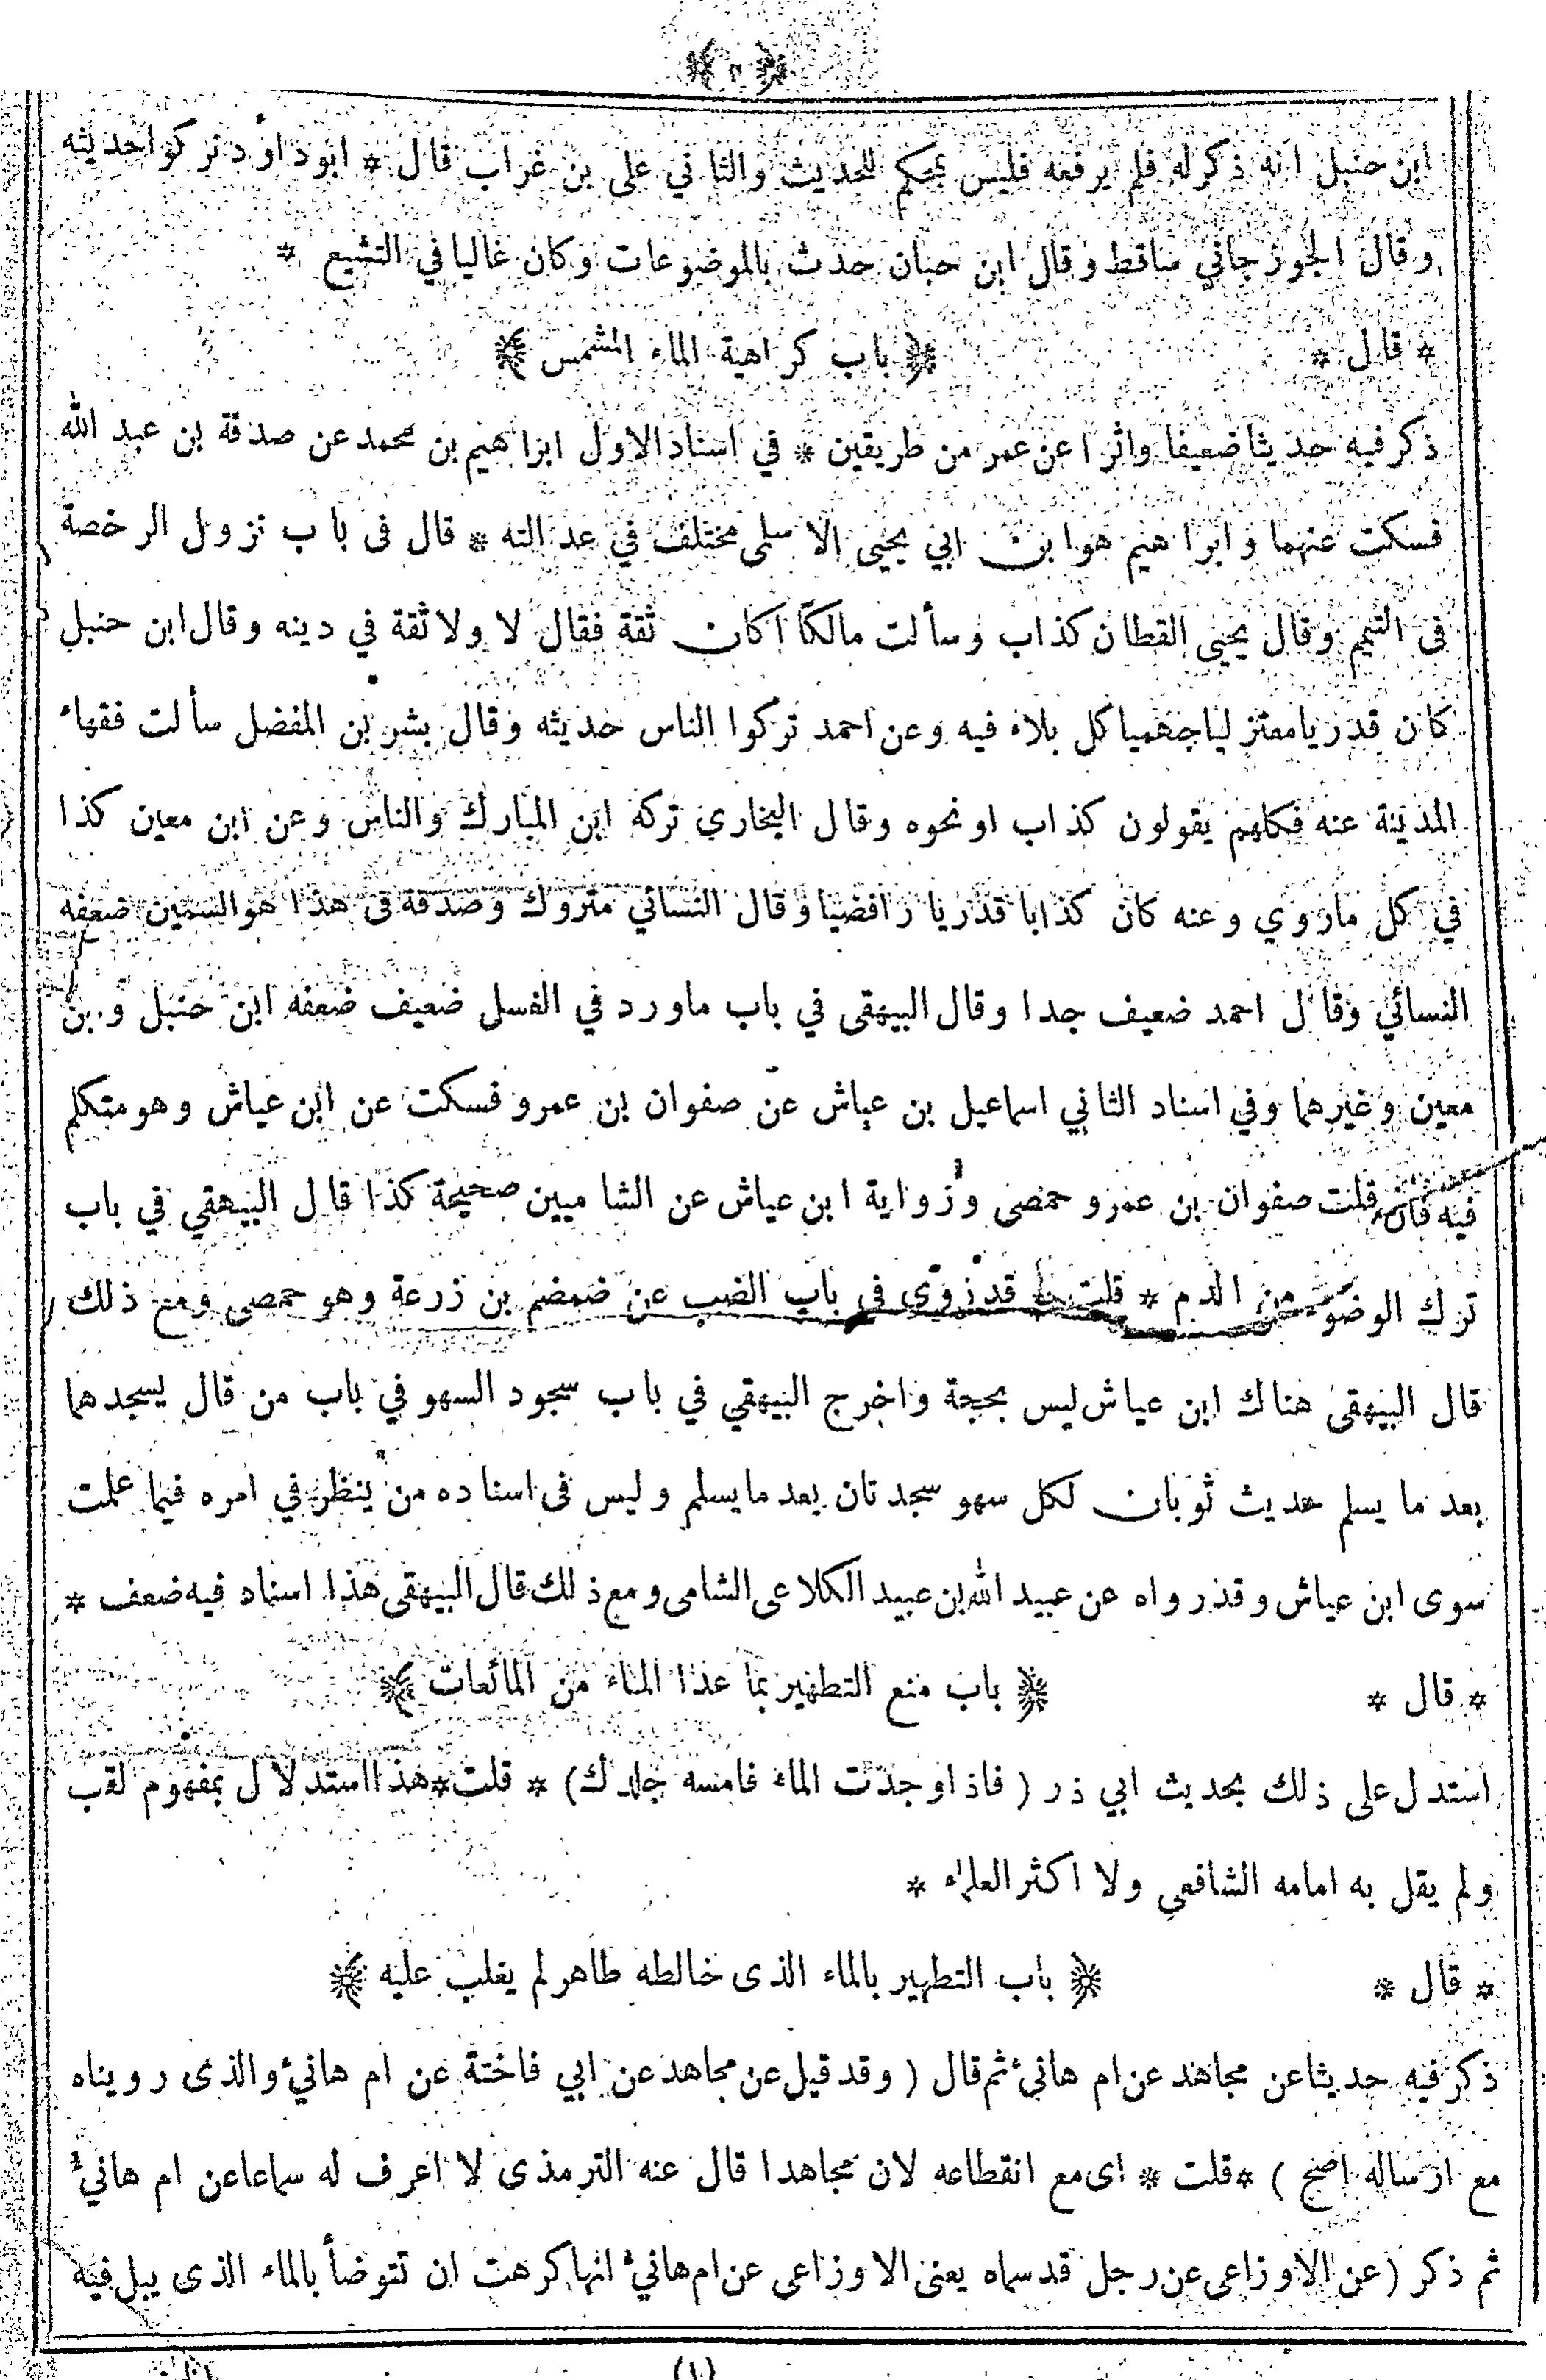 ﴿ ﴾
ابن حنبل انه ذكر له فلم يرفعه فليس بمحكم للحديث والثاني على بن غراب قال * ابو داؤد تركوا حديثه
وقال الجوزجاني ساقط وقال ابن حبان حدث بالموضوعات وكان غاليا في التشيع *
* قال * ﴿ باب كراهية الماء المشمس ﴾
ذكر فيه حديثا ضعيفا واثرا عن عمر من طريقين * في اسناد الاول ابراهيم بن محمد عن صدقة بن عبد الله
فسكت عنهما وابراهيم هو ابن ابي يحيى الاسلمى مختلف في عدالته * قال فى باب نزول الرخصة
فى التيمم وقال يحيى القطان كذاب وسألت مالكا أكان ثقة فقال لا ولا ثقة في دينه وقال ابن حنبل
كان قدريا معتزليا جهميا كل بلاء فيه وعن احمد تركوا الناس حديثه وقال بشر بن المفضل سألت فقهاء
المدينة عنه فكلهم يقولون كذاب او نحوه وقال البخاري تركه ابن المبارك والناس وعن ابن معين كذا
في كل ماروي وعنه كان كذابا قدريا رافضيا وقال النسائي متروك وصدقة فى هذا هو السمين ضعفه
النسائي وقال احمد ضعيف جدا وقال البيهقى في باب ماورد في الغسل ضعيف ضعفه ابن حنبل و.بن
معين وغيرهما وفي اسناد الثاني اسماعيل بن عياش عن صفوان بن عمرو فسكت عن ابن عياش وهو متكلم
فيه فان قلت صفوان بن عمرو حمصى ورواية ابن عياش عن الشاميين صحيحة كذا قال البيهقي في باب
ترك الوضوء من الدم * قلت * قد روى في باب الضب عن ضمضم بن زرعة وهو حمصى ومع ذلك
قال البيهقى هناك ابن عياش ليس بحجة واخرج البيهقي في باب سجود السهو في باب من قال يسجدهما
بعد ما يسلم حديث ثوبان لكل سهو سجدتان بعد ما يسلم وليس فى اسناده من ينظر في امره فيما علمت
سوى ابن عياش وقد رواه عن عبيد الله بن عبيد الكلاعى الشامى ومع ذلك قال البيهقى هذا اسناد فيه ضعف *
* قال * ﴿ باب منع التطهير بما عدا الماء من المائعات ﴾
استدل على ذلك بحديث ابي ذر ( فاذا وجدت الماء فامسه جلدك ) * قلت * هذا استدلال بمفهوم لقب
ولم يقل به امامه الشافعي ولا اكثر العلماء *
* قال * ﴿ باب التطهير بالماء الذى خالطه طاهر لم يغلب عليه ﴾
ذكر فيه حديثا عن مجاهد عن ام هانئ ثم قال ( وقد قيل عن مجاهد عن ابي فاختة عن ام هانئ والذى رويناه
مع ارساله اصح ) * قلت * اى مع انقطاعه لان مجاهدا قال عنه الترمذى لا اعرف له سماعا عن ام هانئ
ثم ذكر ( عن الاوزاعى عن رجل قد سماه يعنى الاوزاعى عن ام هانئ انها كرهت ان تتوضأ بالماء الذى يبل فيه
(١)